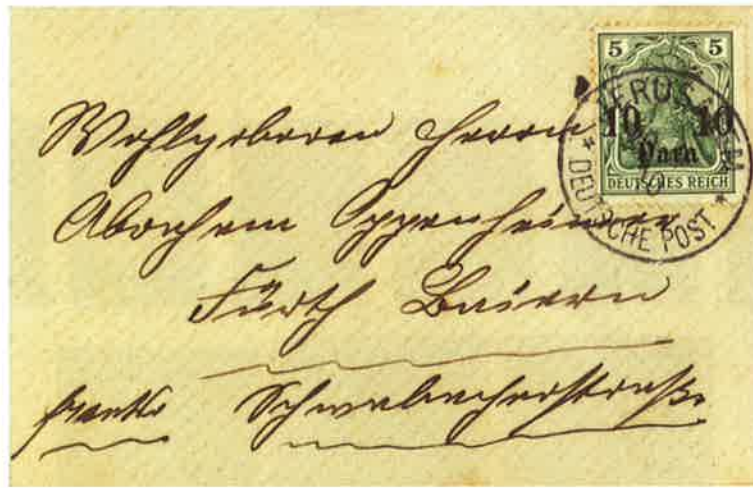 5 5
10 10
Para
DEUTSCHES REICH
JERUSALEM
* DEUTSCHE POST *
Wohlgeboren Herrn
Abraham Oppenheimer
Fürth Baiern
franko Schwabacherstraße